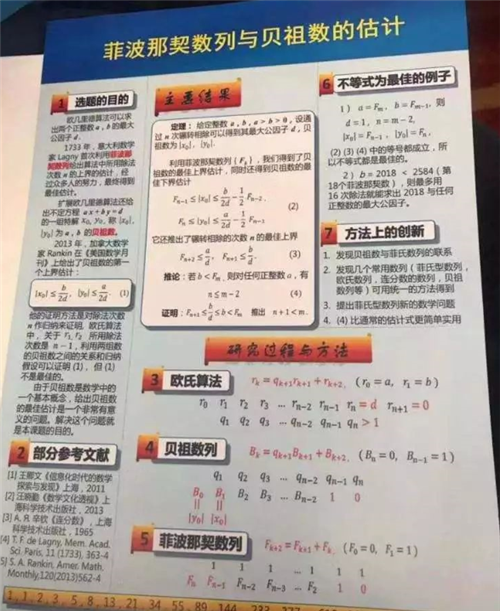 菲波那契数列与贝祖数的估计
1 选题的目的
欧几里德算法可以求
出两个正整数 a, b 的最大
公因子 d。
1733 年，意大利数学
家 Lagny 首次利用菲波那
契数列给出算法中所用除法
次数 n 的上界的估计，经
过众多人的努力，最终得到
最佳估计。
扩展欧几里德算法还给
出不定方程 ax + by = d
的一组特解 x₀, y₀，称 |x₀|,
|y₀| 为 a, b 的贝祖数。
2013 年，加拿大数学
家 Rankin 在《美国数学月
刊》上给出了贝祖数的第一
个上界估计：
|x₀| ≤ b/2d, |y₀| ≤ a/2d (1)
他的证明方法是对除法次数
n 作归纳来证明，欧氏算法
中，关于 r₁, r₂ 所用除法
次数是 n − 1，利用两组数
的贝祖数之间的关系和归纳
假设可以证明 (1)，但 (1)
不是最佳的。
由于贝祖数是数学中的
一个基本概念，给出贝祖数
的最佳估计是一个非常有意
义的问题。解决这个问题就
是本课题的目的。
2 部分参考文献
[1] 王那文《信息化时代的数学
探索与发现》上海，2011
[2] 汪晓勤《数学文化透视》上
海科学技术出版社，2013
[3] А. Я. 辛钦《连分数》，上海
科学技术出版社，1965
[4] T. F. de Lagny, Mem. Acad.
Sci. Paris, 11 (1733), 363-4
[5] S. A. Rankin, Amer. Math.
Monthly,120(2013)562-4
主要结果
定理：给定整数 a, b, a > b > 0，设通
过 n 次辗转相除可以得到其最大公因子 d，贝
祖数为 |x₀|, |y₀|。
利用菲波那契数列 { Fₙ }，我们得到了贝
祖数的最佳上界估计，同时还得到贝祖数的最
佳下界估计
Fₙ₋₁ ≤ |x₀| ≤ b/2d − 1/2 Fₙ₋₂,
(2)
Fₙ ≤ |y₀| ≤ a/2d − 1/2 Fₙ₋₁.
它还推出了辗转相除的次数 n 的最佳上界
Fₙ₊₂ ≤ a/d, Fₙ₊₁ ≤ b/d. (3)
推论：若 b < Fₘ，则对任何正整数 a，有
n ≤ m − 2 (4)
证明：Fₙ₊₁ ≤ b/d ≤ b < Fₘ 推出 n + 1 < m.
研究过程与方法
3 欧氏算法 rₖ = qₖ₊₁rₖ₊₁ + rₖ₊₂, (r₀ = a, r₁ = b)
r₀ r₁ r₂ r₃ … rₙ₋₂ rₙ₋₁ rₙ = d rₙ₊₁ = 0
q₁ q₂ q₃ … qₙ₋₂ qₙ₋₁ qₙ > 1
4 贝祖数列 Bₖ = qₖ₊₁Bₖ₊₁ + Bₖ₊₂, (Bₙ = 0, Bₙ₋₁ = 1)
q₁ q₂ q₃ … qₙ₋₂ qₙ₋₁ qₙ
B₀ B₁ B₂ B₃ … Bₙ₋₂ 1 0
|| ||
|y₀| |x₀|
5 菲波那契数列 Fₖ₊₂ = Fₖ₊₁ + Fₖ, (F₀ = 0, F₁ = 1)
1 1 1 … 1 1 1
Fₙ Fₙ₋₁ Fₙ₋₂ Fₙ₋₃ … F₂ 1 0
6 不等式为最佳的例子
1） a = Fₘ, b = Fₘ₋₁, 则
d = 1, n = m − 2,
|x₀| = Fₙ₋₁, |y₀| = Fₙ.
(2) (3) (4) 中的等号都成立，所
以不等式都是最佳的。
2）b = 2018 < 2584 ( 第
18个菲波那契数 )，则最多用
16 次除法就能求出 2018 与任何
正整数的最大公因子。
7 方法上的创新
1. 发现贝祖数与菲氏数列的联系
2. 发现几个常用数列（菲氏型数列，
欧氏数列，连分数的数列，贝祖
数列等）可用统一的方法得到
3. 提出菲氏型数列新的数学问题
4. (4) 比通常的估计式更简单实用
1, 1, 2, 3, 5, 8, 13, 21, 34, 55, 89, 144, 233, 377